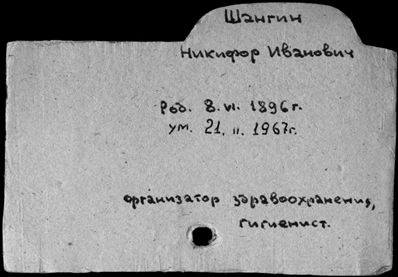 Шангин
Никифор Иванович
Род. 8.VI. 1896г.
ум. 21.II.1967г.
организатор здравоохранения,
гигиенист.